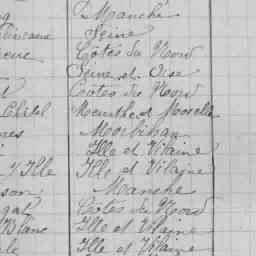 Manche
Seine
Côtes du Nord
Seine et Oise
Côtes du Nord
Chatel Meurthe et Moselle
Morbihan
Ille et Vilaine
Ille Ille et Vilaine
Manche
Côtes du Nord
Blanc Ille et Vilaine
Ille et Vilaine